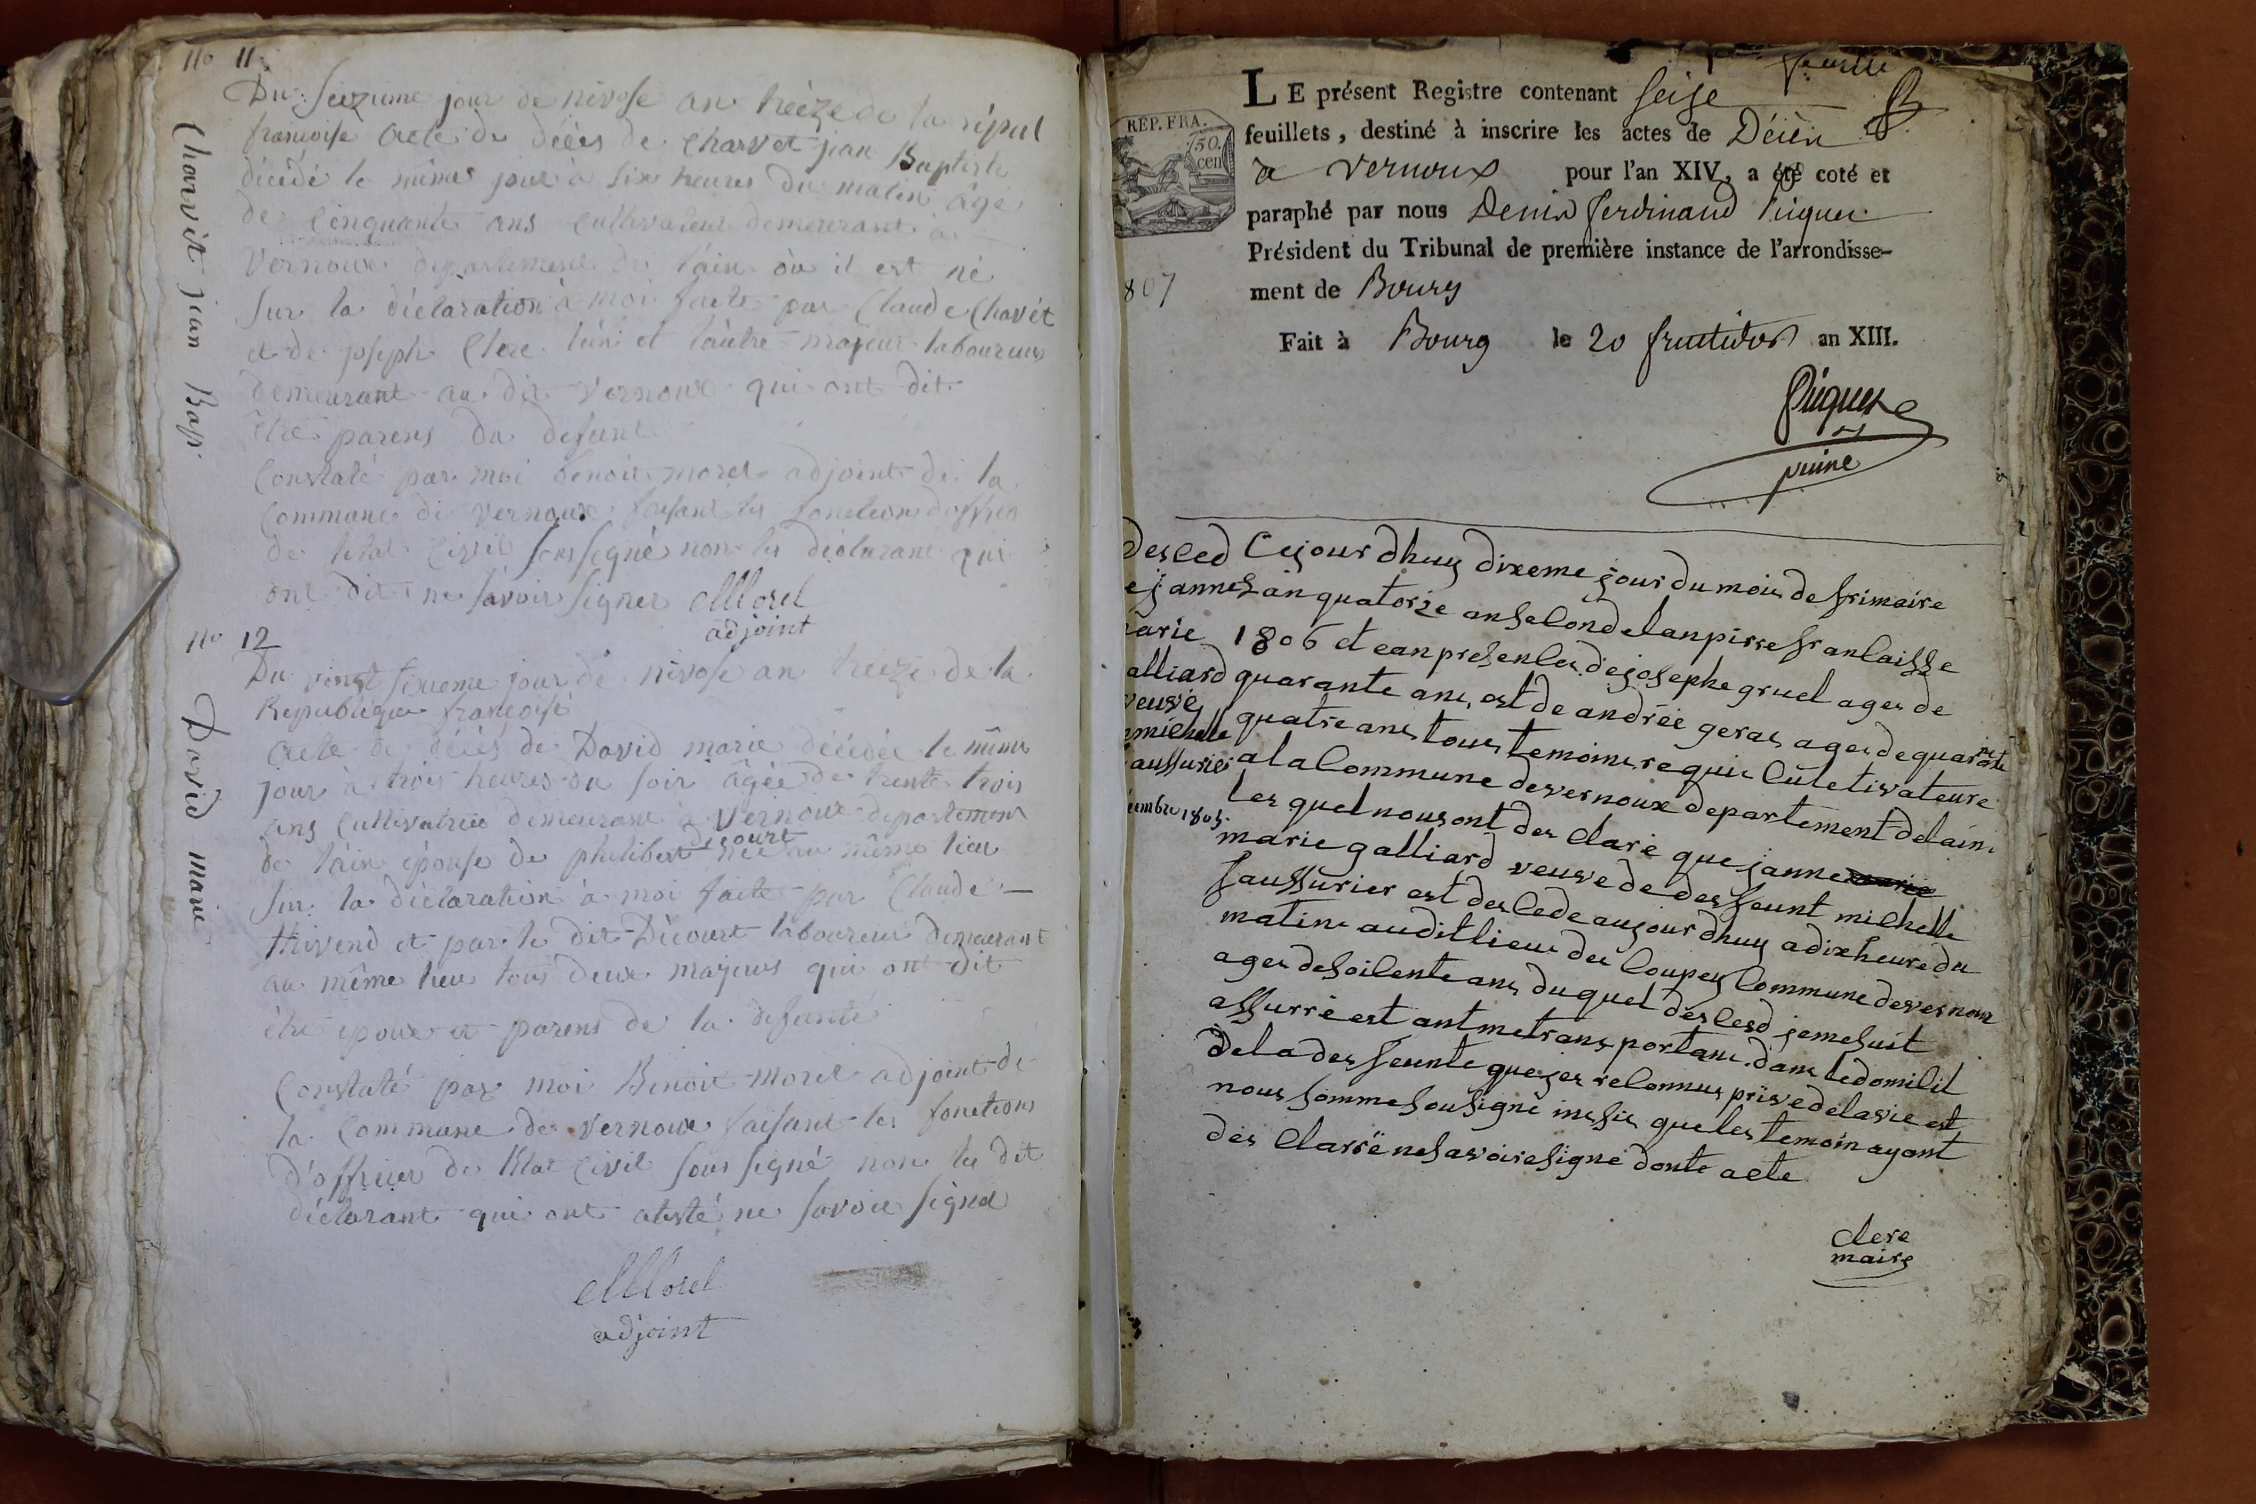 No 11
Du seizieme jour de nivose an treize de la répul
francoise acte de décés de Charvet jean Baptiste
décédé le même jour à six heures du matin âgé
de cinquante ans cultivateur demeurant à
Vernoux departement de l'ain où il est né
sur la déclaration à moi faite par Claude Chavét
et de joseph Clere l'un et l'autre majeur laboureurs
demeurant au dit Vernoux qui ont dit
être parens du defunt
Constaté par moi benoit morel adjoint de la
commune de vernoux faisant les fonctions d'officier
de l'etat civil soussigné non les déclarant qui
ont dit ne savoir signer Morel
adjoint
Charvét jean Bap.
No 12
Du vingt sixieme jour de nivose an treize de la
Republique francoise
acte de décés de David marie décédée le même
jour à trois heures du soir âgée de trente trois
ans cultivatrice demeurant à Vernoux departement
de l'ain épouse de philibert decourt née au même lieu
sur la déclaration à moi faite par Claude
thivend et par le dit Décourt laboureur demeurant
au même lieu tous deux majeurs qui ont dit
être epoux et parens de la defunte
Constaté par moi Benoit morel adjoint de
la commune de vernoux faisant les fonctions
d'officier de l'état civil sous signé non les dit
déclarant qui ont atesté ne savoir signer
Morel
adjoint
David marie
feuille
LE présent Registre contenant seize
feuillets, destiné à inscrire les actes de Décès
de Vernoux pour l'an XIV, a été coté et
paraphé par nous Denis ferdinand Piquet
Président du Tribunal de première instance de l'arrondisse-
ment de Bourg
Fait à Bourg le 20 fructidor an XIII.
Piquet
puiné
REP. FRA.
50.
cen
807
Desced
e janne
arie
alliard
veuve
michelle
aussurier
embre 1805.
Cejourdhuy dixeme jour du mois de frimaire
lan quatorze an selon delanpirre franCaisse
1806 et eanpresenCes dejosephe gruel ages de
quarante ans, est de andrée geras ages dequarante
quatre ans tous temoins requie Culetivateure
a la Commune devernoux departement delain.
Les quel nousont des Claré que janne
marie galliard veuve de des funt michelle
faussurier est des Cede aujourdhuy adixheure du
matin auditlieu des Coupey Commune devernoux
ages desoiCente ans duquel desCesd jemesuit
assurré est ant metransportant dans ledomiCil
dela des funte quejes reConnus prive delavie est
nous somme sousigné insis queles temoin ayant
des Clarrë nesavoiresigné donte acte
Clere
maire